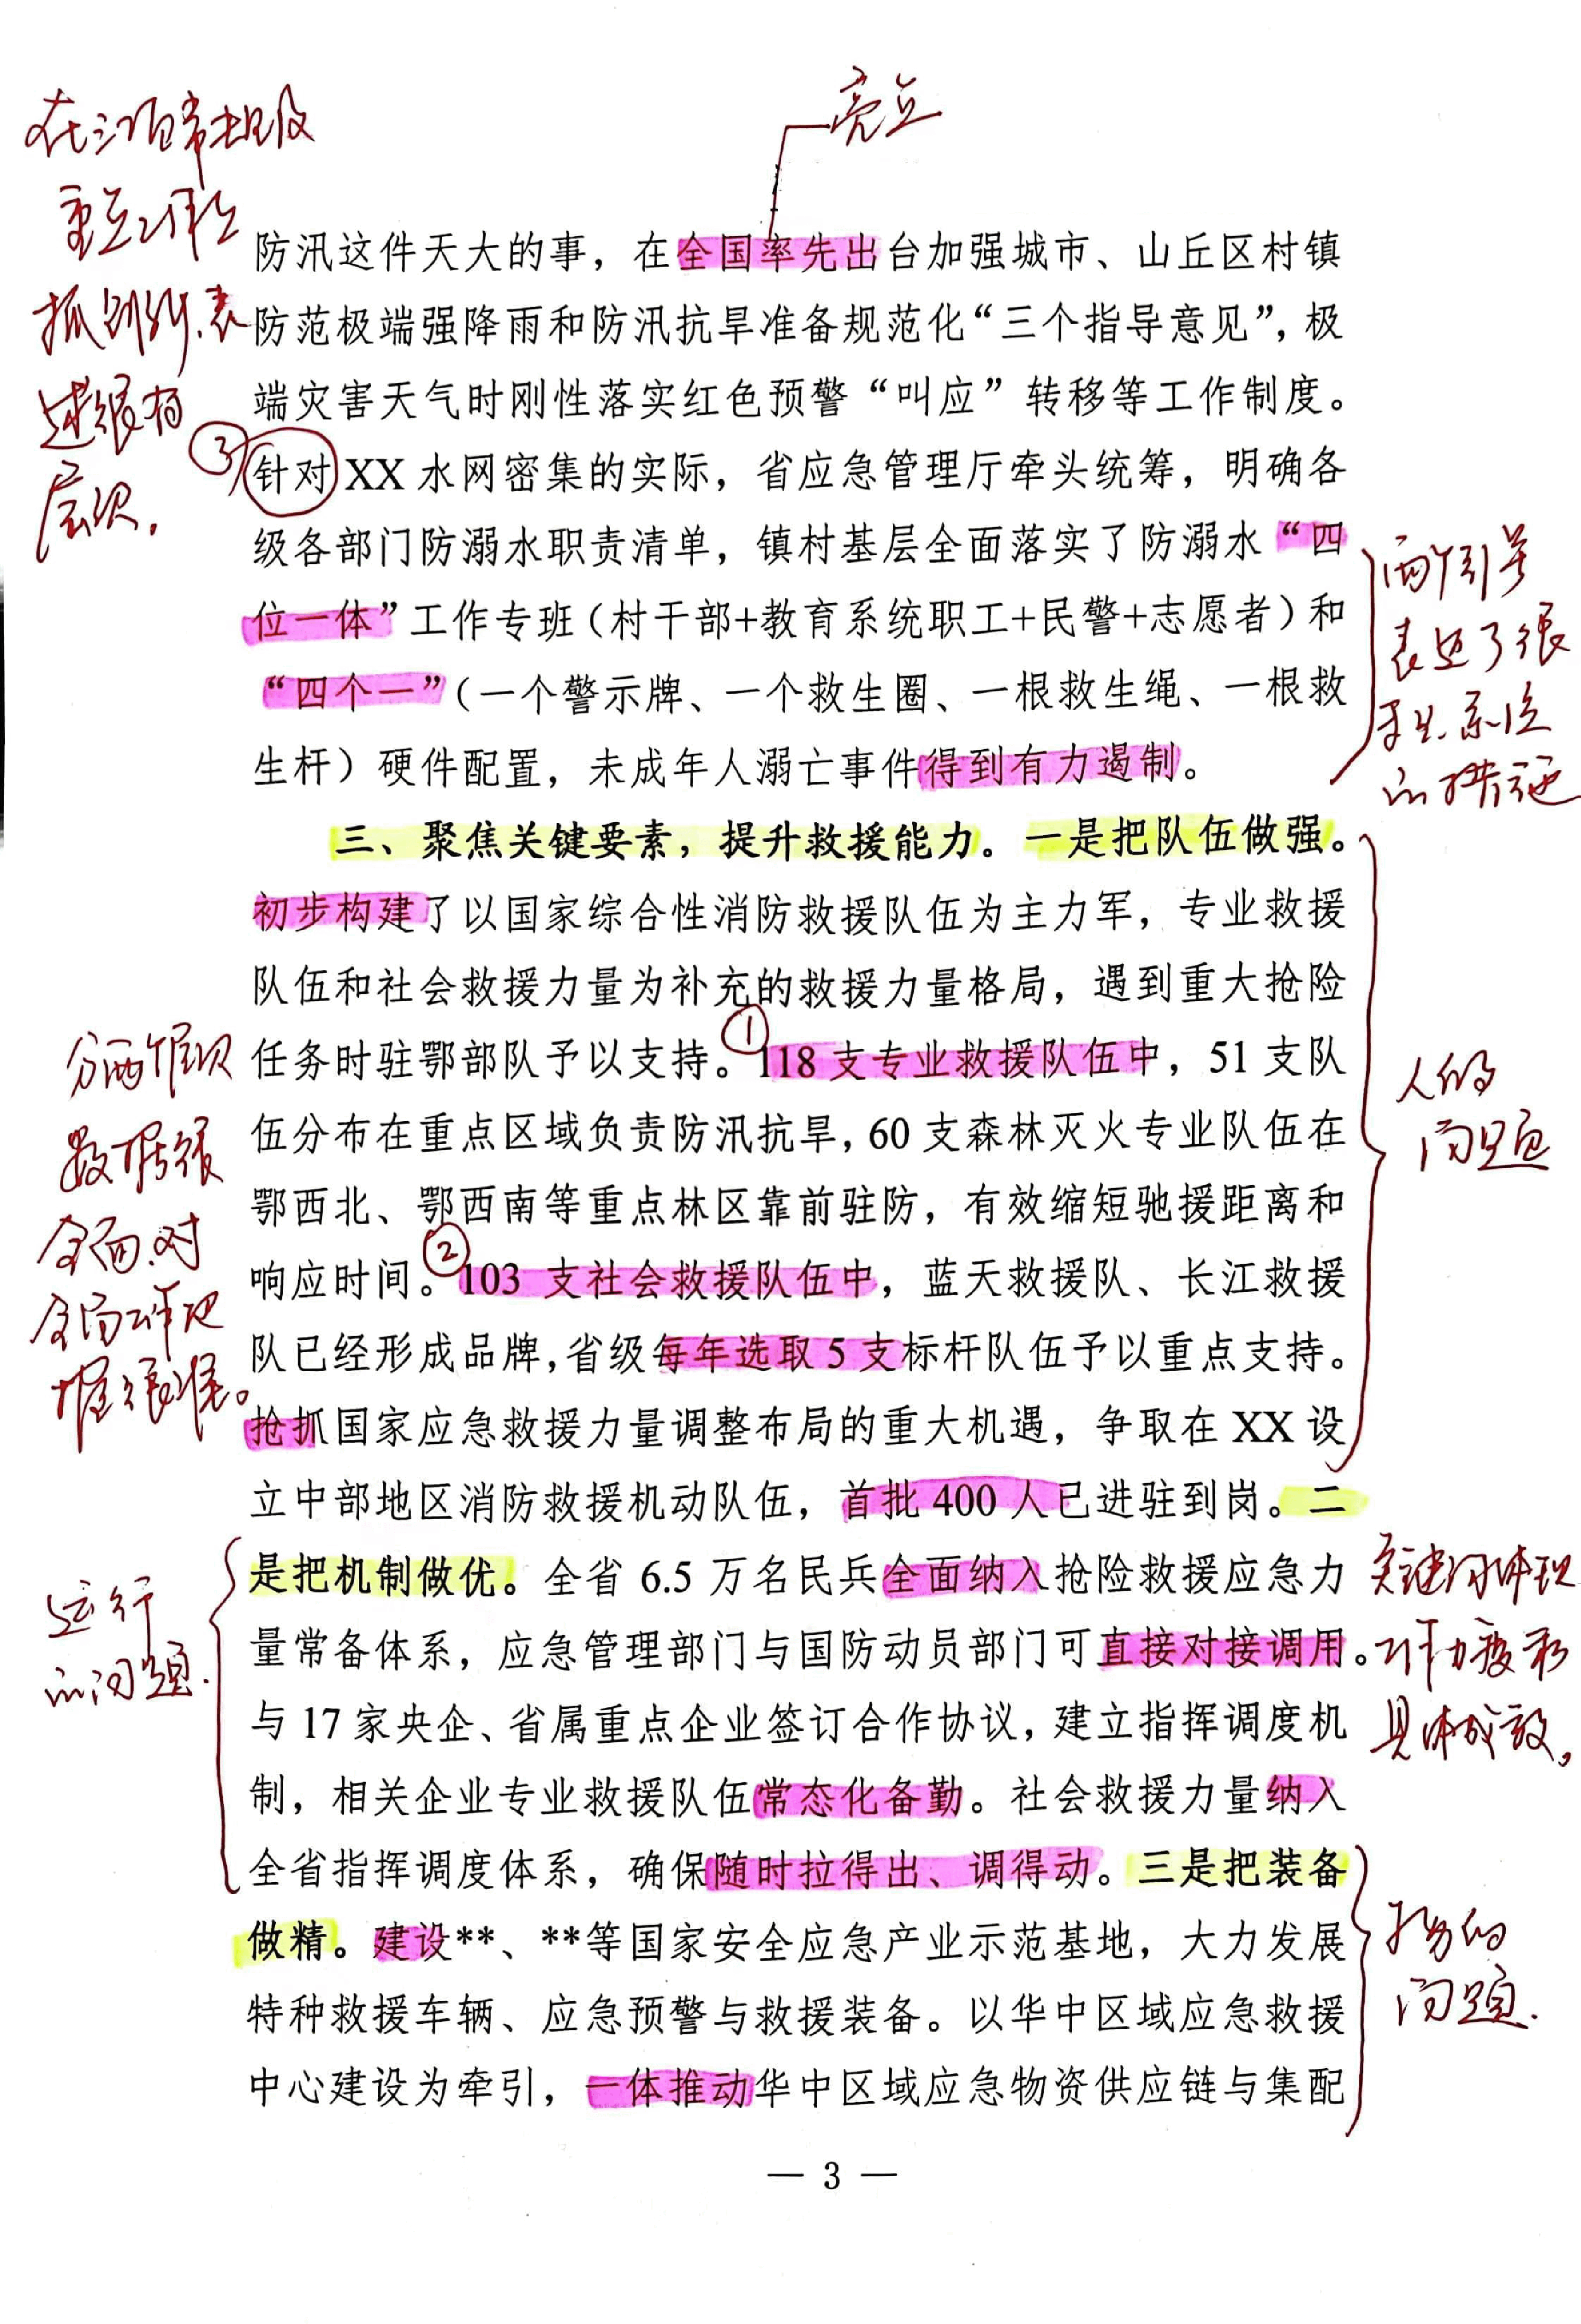 亮点
在三项常规及
重点工作上
抓创新，表
述很有
层次。
防汛这件天大的事，在全国率先出台加强城市、山丘区村镇
防范极端强降雨和防汛抗旱准备规范化“三个指导意见”，极
端灾害天气时刚性落实红色预警“叫应”转移等工作制度。
③
针对XX水网密集的实际，省应急管理厅牵头统筹，明确各
级各部门防溺水职责清单，镇村基层全面落实了防溺水“四
位一体”工作专班（村干部+教育系统职工+民警+志愿者）和
“四个一”（一个警示牌、一个救生圈、一根救生绳、一根救
生杆）硬件配置，未成年人溺亡事件得到有力遏制。
两个引号
表达了很
系统
的措施
三、聚焦关键要素，提升救援能力。一是把队伍做强。
初步构建了以国家综合性消防救援队伍为主力军，专业救援
队伍和社会救援力量为补充的救援力量格局，遇到重大抢险
任务时驻鄂部队予以支持。①118支专业救援队伍中，51支队
伍分布在重点区域负责防汛抗旱，60支森林灭火专业队伍在
鄂西北、鄂西南等重点林区靠前驻防，有效缩短驰援距离和
响应时间。②103 支社会救援队伍中，蓝天救援队、长江救援
队已经形成品牌，省级每年选取5支标杆队伍予以重点支持。
抢抓国家应急救援力量调整布局的重大机遇，争取在XX设
立中部地区消防救援机动队伍，首批400人已进驻到岗。二
是把机制做优。全省6.5万名民兵全面纳入抢险救援应急力
量常备体系，应急管理部门与国防动员部门可直接对接调用。
与17家央企、省属重点企业签订合作协议，建立指挥调度机
制，相关企业专业救援队伍常态化备勤。社会救援力量纳入
全省指挥调度体系，确保随时拉得出、调得动。三是把装备
做精。建设**、**等国家安全应急产业示范基地，大力发展
特种救援车辆、应急预警与救援装备。以华中区域应急救援
中心建设为牵引，一体推动华中区域应急物资供应链与集配
分两个层次
数据很
全面，对
全局工作把
握很准。
人的
问题
运行
的问题.
关键词体现
工作力度和
具体成效。
物的
问题.
— 3 —